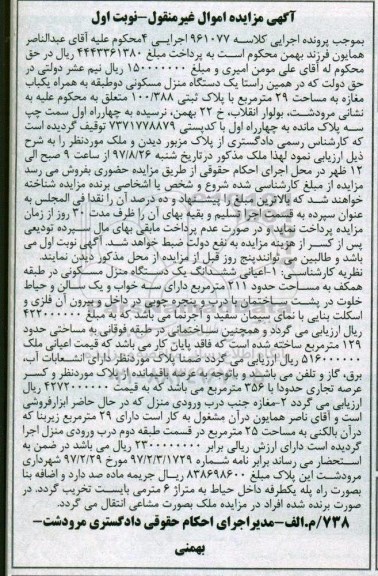 آگهی مزایده اموال غیرمنقول-نوبت اول
بموجب پرونده اجرایی کلاسه ۹۶۱۰۷۷ اجرایی ۴محکوم علیه آقای عبدالناصر
همایون فرزند بهمن محکوم است به پرداخت مبلغ ۴۴۴۳۳۶۱۳۸۰ ریال در حق
محکوم له آقای علی مومن امیری و مبلغ ۱۵۰۰۰۰۰۰۰ ریال نیم عشر دولتی در
حق دولت که در همین راستا یک دستگاه منزل مسکونی دوطبقه به همراه یکباب
مغازه به مساحت ۲۹ مترمربع با پلاک ثبتی ۱۰۰/۳۸۸ متعلق به محکوم علیه به
نشانی مرودشت، بولوار انقلاب، خ ۲۲ بهمن، نرسیده به چهارراه اول سمت چپ
سه پلاک مانده به چهارراه اول با کدپستی ۷۳۷۱۷۷۸۸۷۹ توقیف گردیده است
که کارشناس رسمی دادگستری از پلاک مزبور دیدن و ملک موردنظر را به شرح
ذیل ارزیابی نمود لهذا ملک مذکور درتاریخ شنبه ۹۷/۸/۲۶ از ساعت ۹ صبح الی
۱۲ ظهر در محل اجرای احکام حقوقی از طریق مزایده حضوری بفروش می رسد
مزایده از مبلغ کارشناسی شده شروع و شخص یا اشخاصی برنده مزایده شناخته
خواهند شد که بالاترین مبلغ را پیشنهاد و ده درصد آن را نقدا فی المجلس به
عنوان سپرده به قسمت اجرا تسلیم و بقیه بهای آن را ظرف مدت ۳۰ روز از زمان
مزایده پرداخت نماید و در صورت عدم پرداخت مابقی بهای مال سپرده تودیعی
پس از کسر از هزینه مزایده به نفع دولت ضبط خواهد شد. آگهی نوبت اول می
باشد و طالبین می توانندپنج روز قبل از مزایده از محل مذکور دیدن نمایند.
نظریه کارشناسی: ۱-اعیانی ششدانگ یک دستگاه منزل مسکونی در طبقه
همکف به مساحت حدود ۲۱۱ مترمربع دارای سه خواب و یک سالن و حیاط
خلوت در پشت ساختمان با درب و پنجره چوبی در داخل و بیرون آن فلزی و
اسکلت بنایی با نمای سیمان سفید و آجرنما می باشد که به مبلغ ۴۲۲۰۰۰۰۰۰
ریال ارزیابی می گردد و همچنین ساختمانی در طبقه فوقانی به مساحتی حدود
۱۲۹ مترمربع ساخته شده است که فاقد پایان کار می باشد که قیمت اعیانی ملک
۵۱۶۰۰۰۰۰۰ ریال ارزیابی می گردد ضمنا پلاک موردنظر دارای انشعابات آب،
برق، گاز و تلفن می باشند و باتوجه به عرصه باقیمانده از پلاک موردنظر و کسر
عرصه تجاری حدودا با ۳۵۶ مترمربع می باشد که به قیمت ۴۲۷۲۰۰۰۰۰۰ ریال
ارزیابی می گردد ۲-مغازه جنب درب ورودی منزل که در حال حاضر ابزارفروشی
است و آقای ناصر همایون درآن مشغول به کار است دارای ۲۹ مترمربع زیربنا که
درآن بالکنی به مساحت ۲۵ مترمربع در قسمت طبقه دوم درب ورودی منزل اجرا
گردیده است دارای ارزش ریالی برابر ۲۳۰۰۰۰۰۰۰۰ ریال می باشد در ضمن به
استحضار می رساند برابر نامه شماره ۹۷/۲/۳/۱۷۲۹ مورخ ۹۷/۲/۲۹ شهرداری
مرودشت این پلاک مبلغ ۸۳۸۶۹۸۶۰۰ ریال جریمه ماده صد دارد و اضافه بنا
بصورت راه پله یکطرفه داخل حیاط به متراژ ۶ مترمی بایست تخریب گردد. در
صورت برنده شده افراد در مزایده ملک بصورت مشاعی انتقال می گردد.
۷۳۸/م.الف-مدیراجرای احکام حقوقی دادگستری مرودشت-
بهمنی